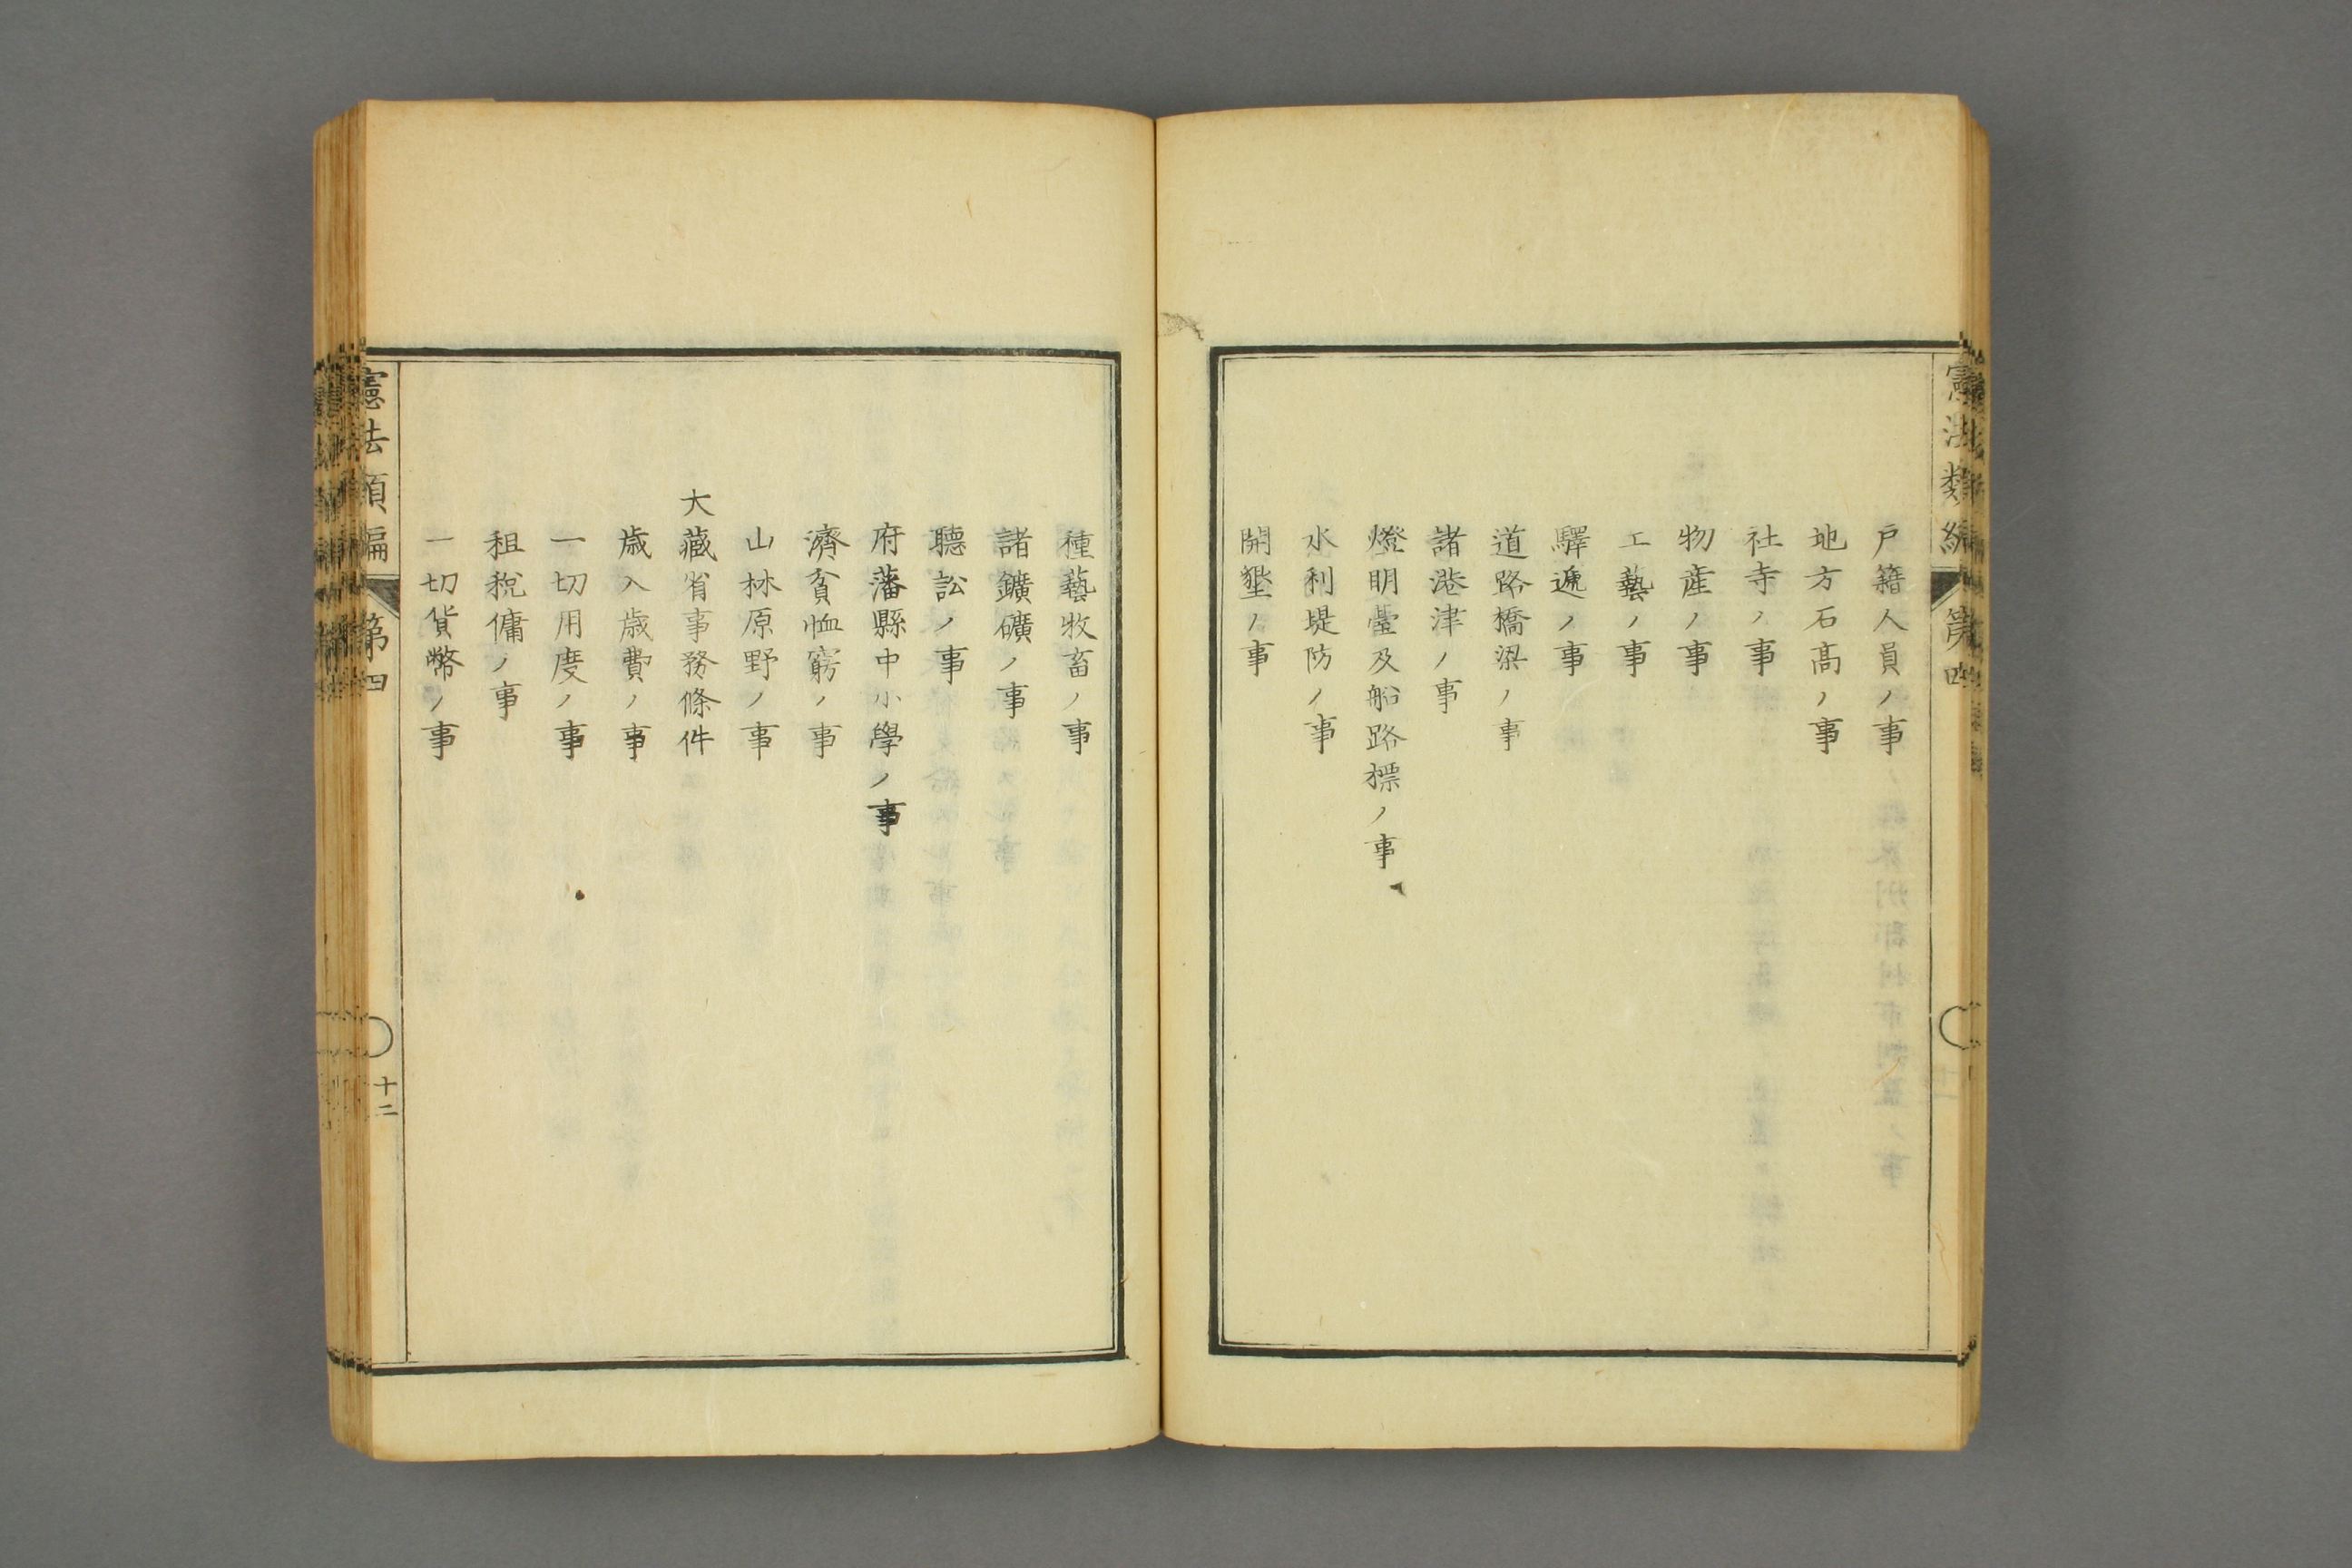 憲法類編 第四
戸籍人員ノ事
地方石高ノ事
社寺ノ事
物産ノ事
工藝ノ事
驛遞ノ事
道路橋梁ノ事
諸港津ノ事
燈明臺及船路標ノ事
水利堤防ノ事
開墾ノ事
種藝牧畜ノ事
諸鑛礦ノ事
聽訟ノ事
府藩縣中小學ノ事
濟貧恤窮ノ事
山林原野ノ事
大藏省事務條件
歳入歳費ノ事
一切用度ノ事
租税傭ノ事
一切貨幣ノ事
憲法類編 第四
十二